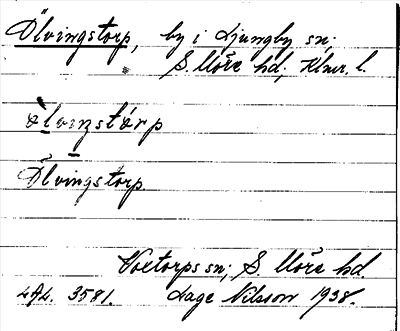 Ölvingstorp, by i Ljungby sn;
S. Möre hd; Klmr. l.
ölvıŋstórp
Ölvingstorp.
Voxtorps sn; S. Möre hd.
3581. Lage Nilsson 1938.